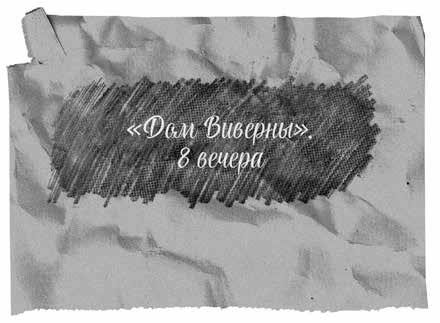 «Дом Виверны».
8 вечера